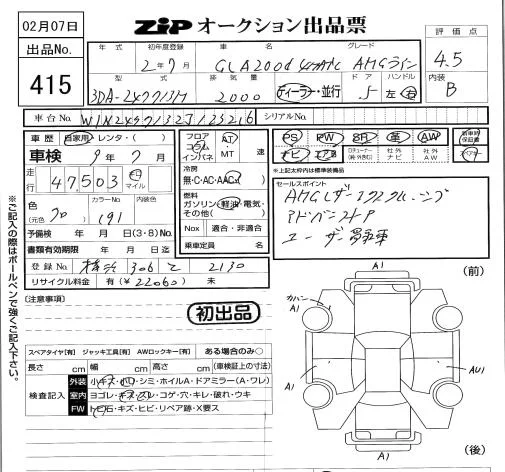 02月07日
ZIPオークション出品票
出品No.
415
評価点
4.5
内装
B
年式 初年度登録 車名 グレード
2年7月 GLA200d 4MATIC AMGライン
型式 排気量 ドア ハンドル
3DA-247713M 2000 ディーラー・並行 5 左・右
車台No. W1N2477132J125216 シリアルNo.
車歴 自家用・レンタ・( )
車検 9年7月
走行 47,503 km マイル
色 クロ (元色 ) カラーNo. 191 内装色
予備検 年 月 日(3・8)No.
書類有効期限 年 月 日迄
登録No. 横浜 306 と 2130
リサイクル料金 有(¥22060) 未
フロア コラム インパネ AT・MT 速
冷房
無・C・AC・AAC
燃料
ガソリン・軽油・電気・その他( )
Nox 適合・非適合
乗車定員 名
PS PW SR 革 AW 新車時保証書
ナビ エアB 社外ナビ 社外AW
*上記太枠内は標準装備品
セールスポイント
AMGレザーエクスクルーシブ
アドバンストP
ユーザー買取車
初出品
[注意事項]
スペアタイヤ[有] ジャッキ工具[有] AWロックキー[有] ある場合のみ○
長さ cm 幅 cm 高さ cm (車検証上の寸法)
検査記入
外装 小キズ・小凹・シミ・ホイルA・ドアミラー(A・ワレ)
室内 ヨゴレ・キズ・スレ・コゲ・穴・キレ・破れ・ウキ
FW トビ石・キズ・ヒビ・リペア跡・X要ス
※ご記入の際はボールペンで強くご記入下さい。
(前)
A1
A1
A1
AU1
A1
(後)